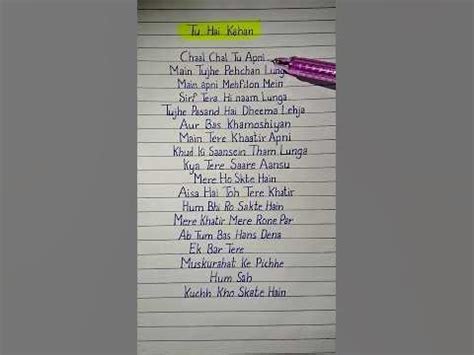 Tu Hai Kahan
Chaal Chal Tu Apni
Main Tujhe Pehchan Lunga
Main apni Mehfilon Mein
Sirf Tera Hi naam Lunga
Tujhe Pasand Hai Dheema Lehja
Aur Bas Khamoshiyan
Main Tere Khaatir Apni
Khud Ki Saansein Tham Lunga
Kya Tere Saare Aansu
Mere Ho Skte Hain
Aisa Hai Toh Tere Khatir
Hum Bhi Ro Sakte Hain
Mere Khatir Mere Rone Par
Ab Tum Bas Hans Dena
Ek Bar Tere
Muskurahat Ke Pichhe
Hum Sab
Kuchh Kho Skate Hain